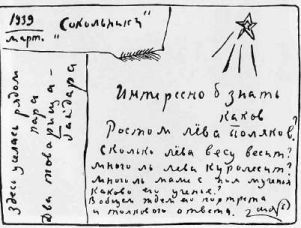 1939
март.
"Сокольники"
Здесь уселась рядом
пара
Два товарища -
Гайдара
Интересно б знать
каков
Ростом Лёва Поляков?
Сколько лёва весу весит?
Много ль лева куролесит?
Много ль мама с ним мучений
Каково его ученье?
Вообщем ждем до портрета
и толкового ответа.